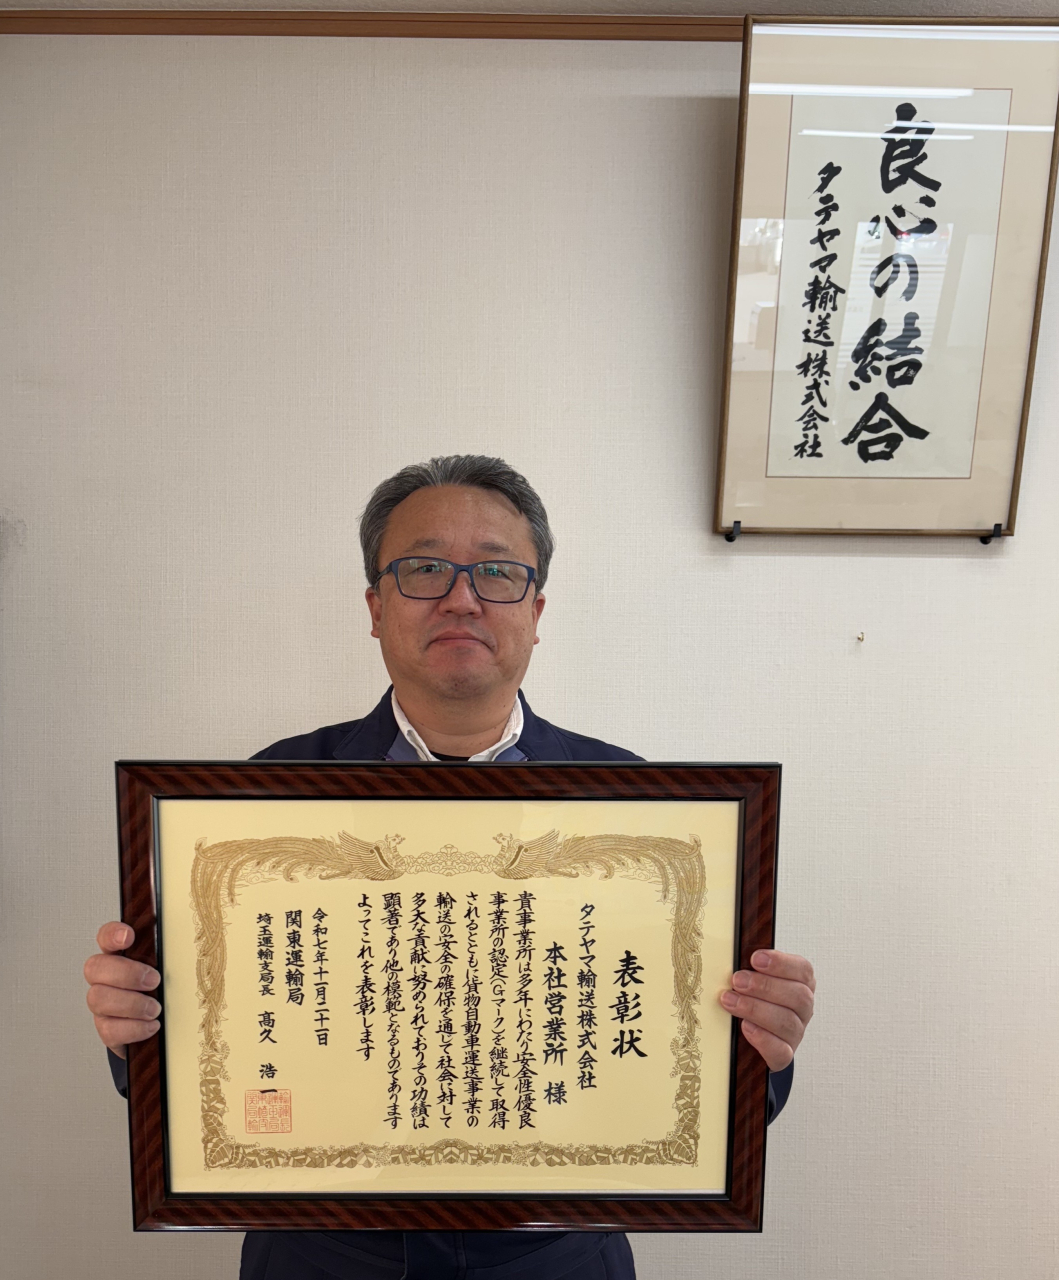 良心の結合
タテヤマ輸送株式会社
表彰状
タテヤマ輸送株式会社
本社営業所 様
貴事業所は多年にわたり安全性優良
事業所の認定(Gマーク)を継続して取得
されるとともに貨物自動車運送事業の
輸送の安全の確保を通じて社会に対して
多大な貢献に努められておりその功績は
顕著であり他の模範となるものであります
よってこれを表彰します
令和七年十一月二十一日
関東運輸局
埼玉運輸支局長 高久 浩一